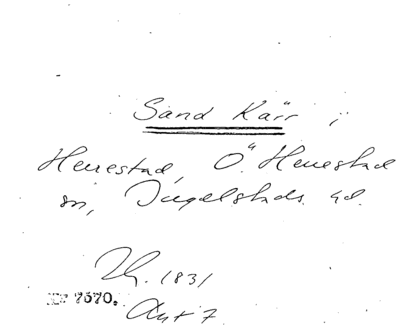 Sand Kärr i
Herrestad, Ö. Herrestad
sn, Ingelstads hd.
1831
Nr 7570.
Akt 7